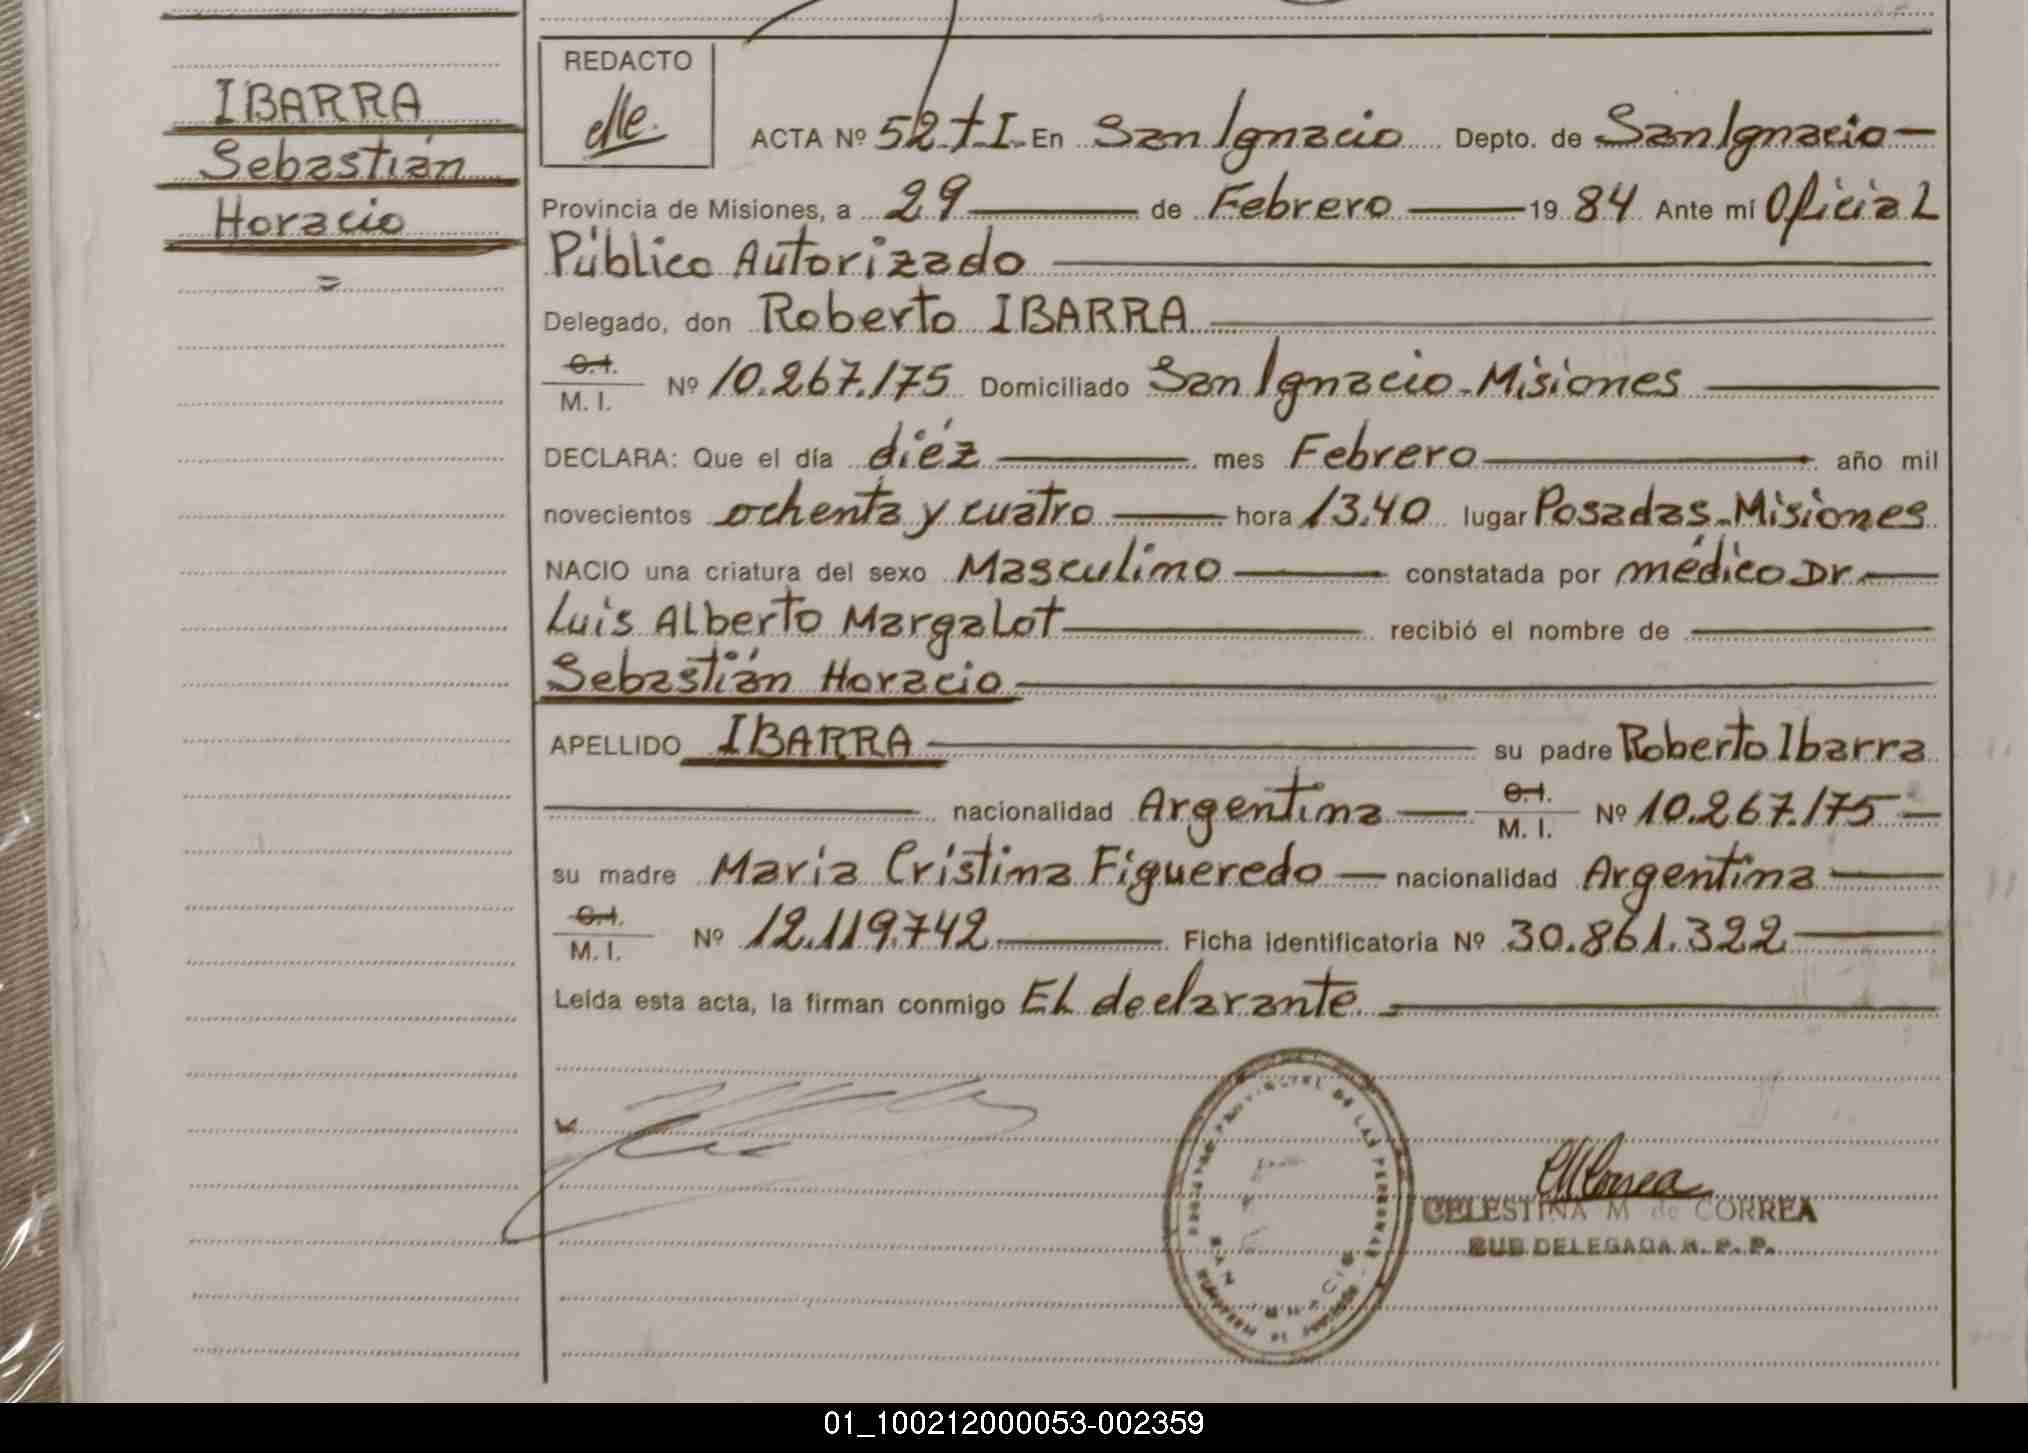 IBARRA
Sebastián
Horacio
=
REDACTO
ACTA Nº 52-t-I- En San Ignacio Depto. de San Ignacio
Provincia de Misiones, a 29 de Febrero 1984 Ante mí Oficial
Público Autorizado
Delegado, don Roberto IBARRA
C.I. / M. I. Nº 10.267.175 Domiciliado San Ignacio-Misiones
DECLARA: Que el día diéz mes Febrero año mil
novecientos ochenta y cuatro hora 13.40 lugar Posadas-Misiones
NACIO una criatura del sexo Masculino constatada por médico Dr.
Luis Alberto Margalot recibió el nombre de
Sebastián Horacio
APELLIDO IBARRA su padre Roberto Ibarra
nacionalidad Argentina C.I. / M. I. Nº 10.267.175
su madre Maria Cristina Figueredo nacionalidad Argentina
C.I. / M. I. Nº 12.119.742 Ficha identificatoria Nº 30.861.322
Leída esta acta, la firman conmigo EL declarante
REGISTRO PROVINCIAL DE LAS PERSONAS
SAN IGNACIO
CMCorrea
CELESTINA M de CORREA
SUB DELEGADA R. P. P.
01_100212000053-002359